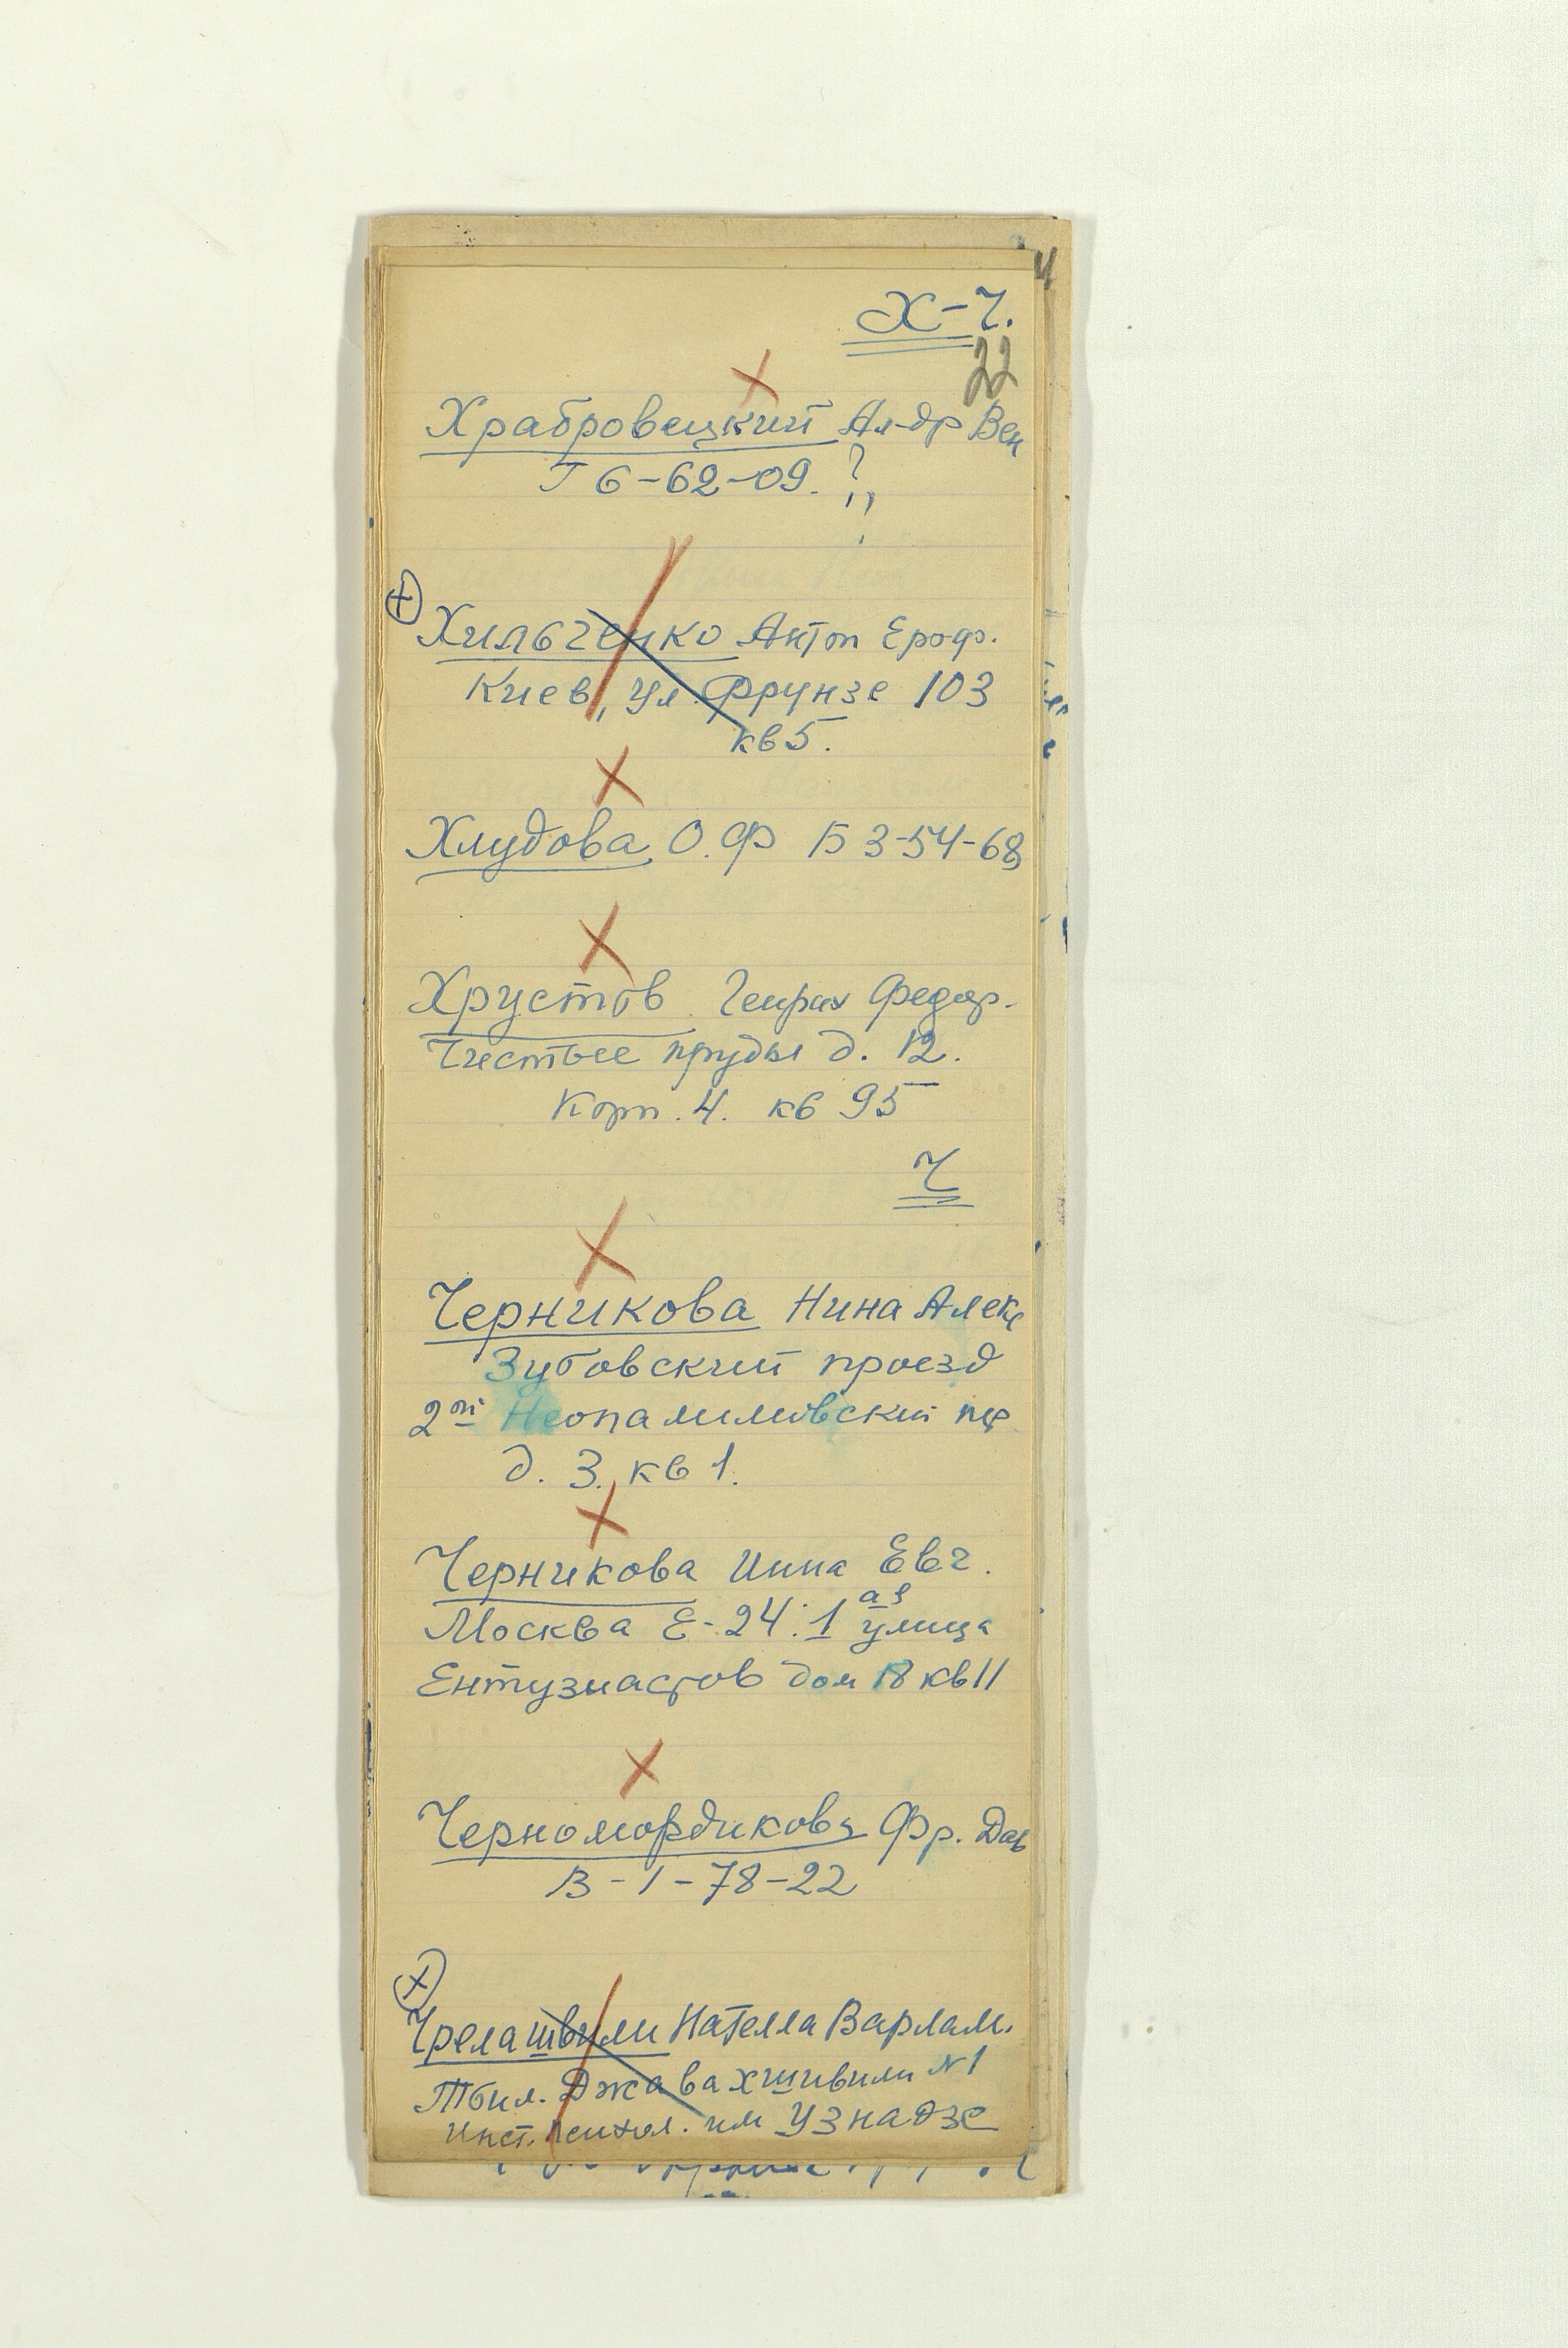 Х-Ч.
22
Храбровецкий Ал-др Вен
Г 6-62-09. ?
Хильченко Антон Ероф.
Киев, ул. Фрунзе 103
кв 5.
Хлудова О. Ф Б 3-54-68
Хрустов Генрих Федор.
Чистые пруды д. 12.
Корп. 4. кв 95
Ч
Черникова Нина Алекс
Зубовский проезд
2ой Неопалимовский пер
д. 3. кв 1.
Черникова Инна Евг.
Москва Е-24. 1ая улица
Ентузиастов дом 18 кв 11
Черномордикова Фр. Дав
В-1-78-22
Чрелашвили Нателла Варлам.
Тбил. Джавахишвили №1
Инст. Психол. им Узнадзе